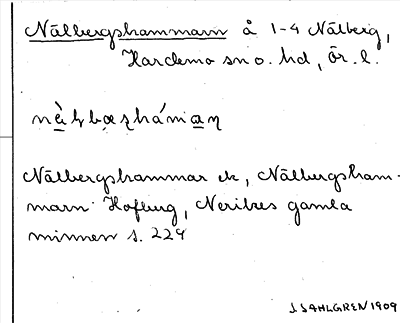 Nälbergshammarn å 1-4 Nälberg,
Hardemo sn o. hd, Ör. l.
Nälbergshammar ek, Nälbergsham-
marn Hofberg, Nerikes gamla
minnen s. 229
J SAHLGREN 1909